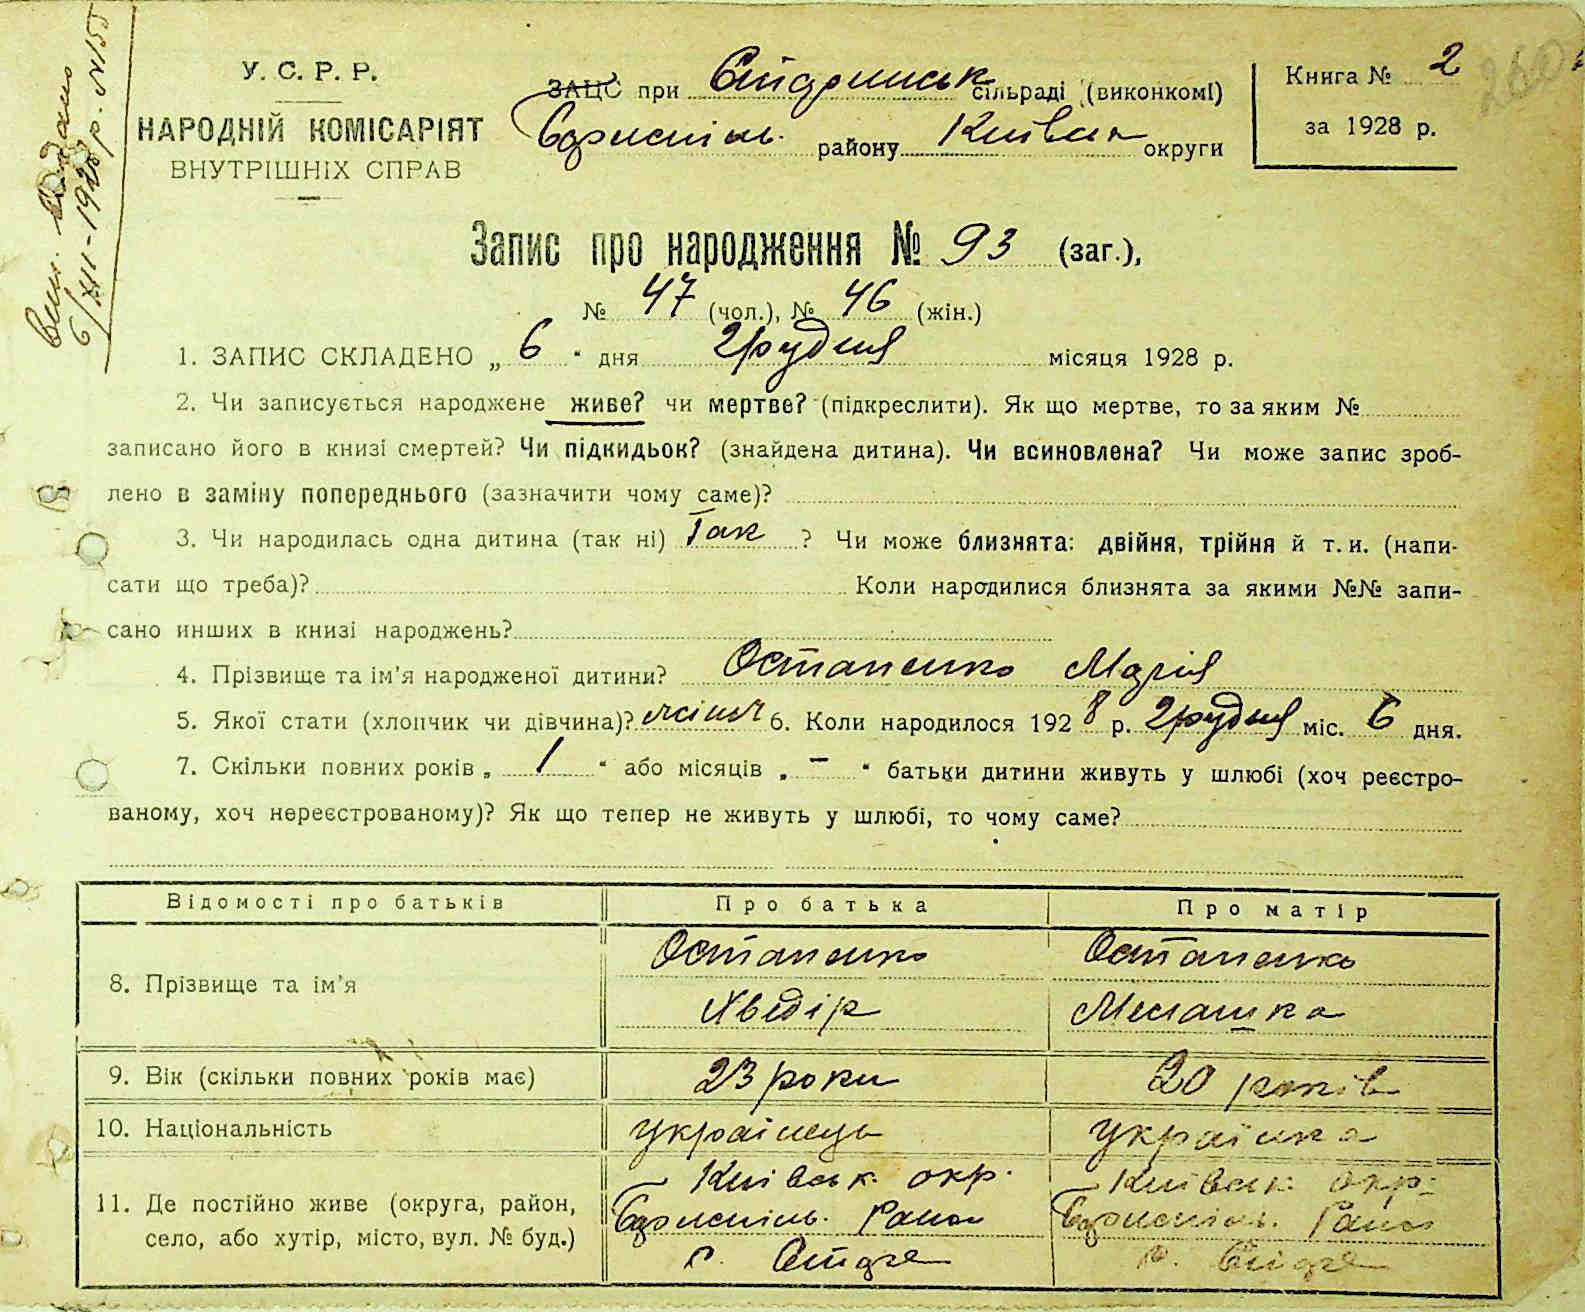 Вип. видано
6/XII-1928 р. N155
У. С. Р. Р.
НАРОДНІЙ КОМІСАРІЯТ
ВНУТРІШНІХ СПРАВ
ЗАЦС при сільраді (виконкомі)
Бориспіль. району Київськ округи
Книга № 2
за 1928 р.
260
Запис про народження № 93 (заг.),
№ 47 (чол.), № 46 (жін.)
1. ЗАПИС СКЛАДЕНО „ 6 “ дня Грудня місяця 1928 р.
2. Чи записується народжене живе? чи мертве? (підкреслити). Як що мертве, то за яким №
записано його в книзі смертей? Чи підкидьок? (знайдена дитина). Чи всиновлена? Чи може запис зроб-
лено в заміну попереднього (зазначити чому саме)?
3. Чи народилась одна дитина (так ні) Так ? Чи може близнята: двійня, трійня й т. и. (напи-
сати що треба)? Коли народилися близнята за якими №№ запи-
сано инших в книзі народжень?
4. Прізвище та ім'я народженої дитини? Остапенко Марія
5. Якої стати (хлопчик чи дівчина)? жіноч 6. Коли народилося 1928 р. Грудня міс. 6 дня.
7. Скільки повних років „ 1 “ або місяців „ - “ батьки дитини живуть у шлюбі (хоч реєстро-
ваному, хоч нереєстрованому)? Як що тепер не живуть у шлюбі, то чому саме?
Відомості про батьків Про батька Про матір
8. Прізвище та ім'я Остапенко Остапенко
Хведір Мелашка
9. Вік (скільки повних років має) 23 роки 20 років
10. Національність українець українка
11. Де постійно живе (округа, район, Київськ. окр. Київськ. окр.
село, або хутір, місто, вул. № буд.) Бориспіль. Район Бориспіль. Район
с. с.